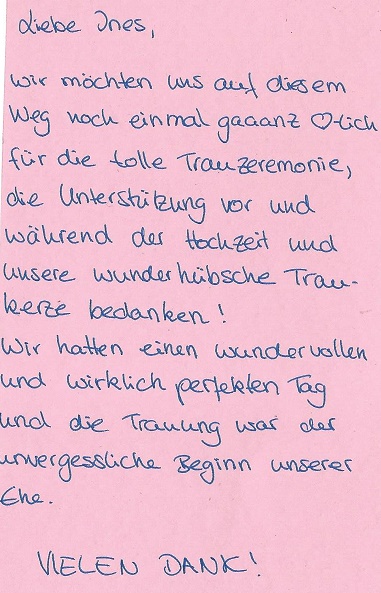 Liebe Ines,
wir möchten uns auf diesem
Weg noch einmal gaaanz ♡-lich
für die tolle Trauzeremonie,
die Unterstützung vor und
während der Hochzeit und
unsere wunderhübsche Trau-
kerze bedanken!
Wir hatten einen wundervollen
und wirklich perfekten Tag
und die Trauung war der
unvergessliche Beginn unserer
Ehe.
VIELEN DANK!